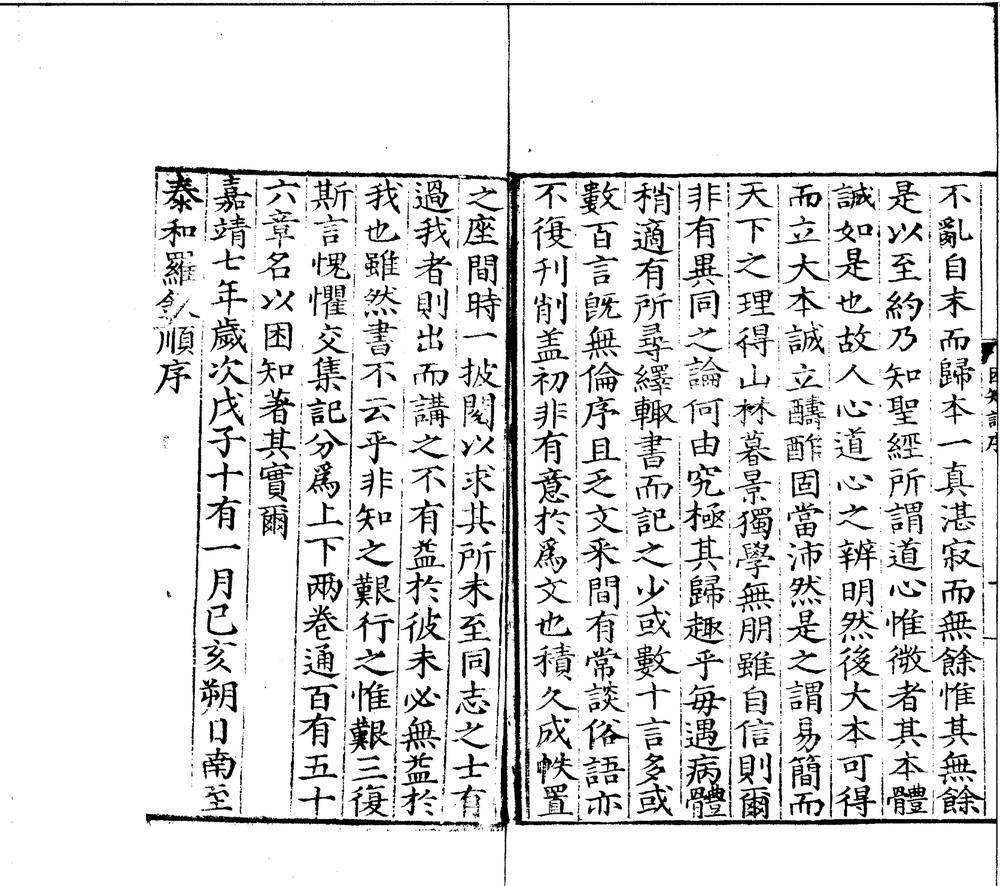 不亂自末而歸本一真湛寂而無餘惟其無餘
是以至約乃知聖經所謂道心惟微者其本體
誠如是也故人心道心之辨明然後大本可得
而立大本誠立酬酢固當沛然是之謂易簡而
天下之理得山林暮景獨學無朋雖自信則爾
非有異同之論何由究極其歸趣乎每遇病體
稍適有所尋繹輙書而記之少或數十言多或
數百言旣無倫序且乏文采間有常談俗語亦
不復刊削盖初非有意於爲文也積久成帙置
之座間時一披閱以求其所未至同志之士有
過我者則出而講之不有益於彼未必無益於
我也雖然書不云乎非知之艱行之惟艱三復
斯言愧懼交集記分爲上下兩卷通百有五十
六章名以困知著其實爾
嘉靖七年歲次戊子十有一月己亥朔日南至
泰和羅欽順序
困知記序